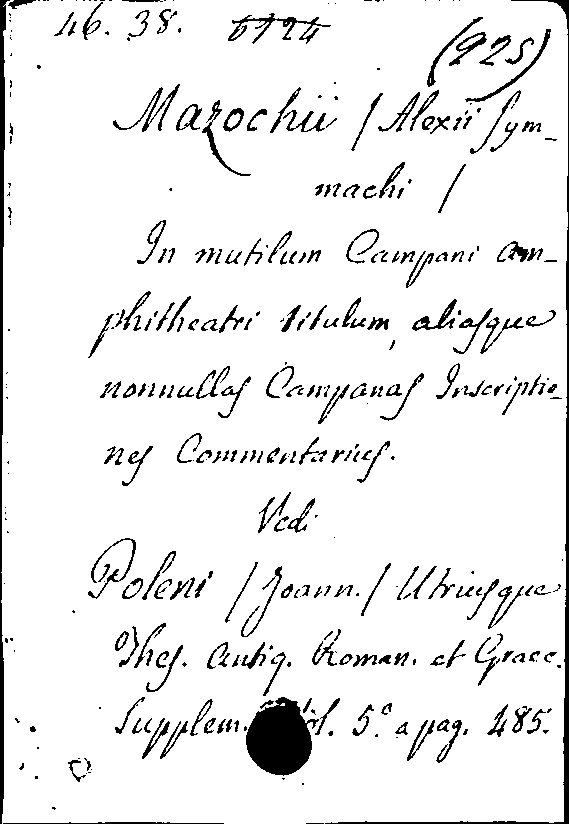 46. 38. 6724
(925)
Mazochii / Alexii Sym-
machi /
In mutilum Campani am-
phitheatri titulum, aliasque
nonnullas Campanas Inscriptio-
nes Commentarius.
Vedi
Poleni / Joann. / Utriusque
Thes. Antiq. Roman. et Graec.
Supplem. Vol. 5.º a pag. 485.